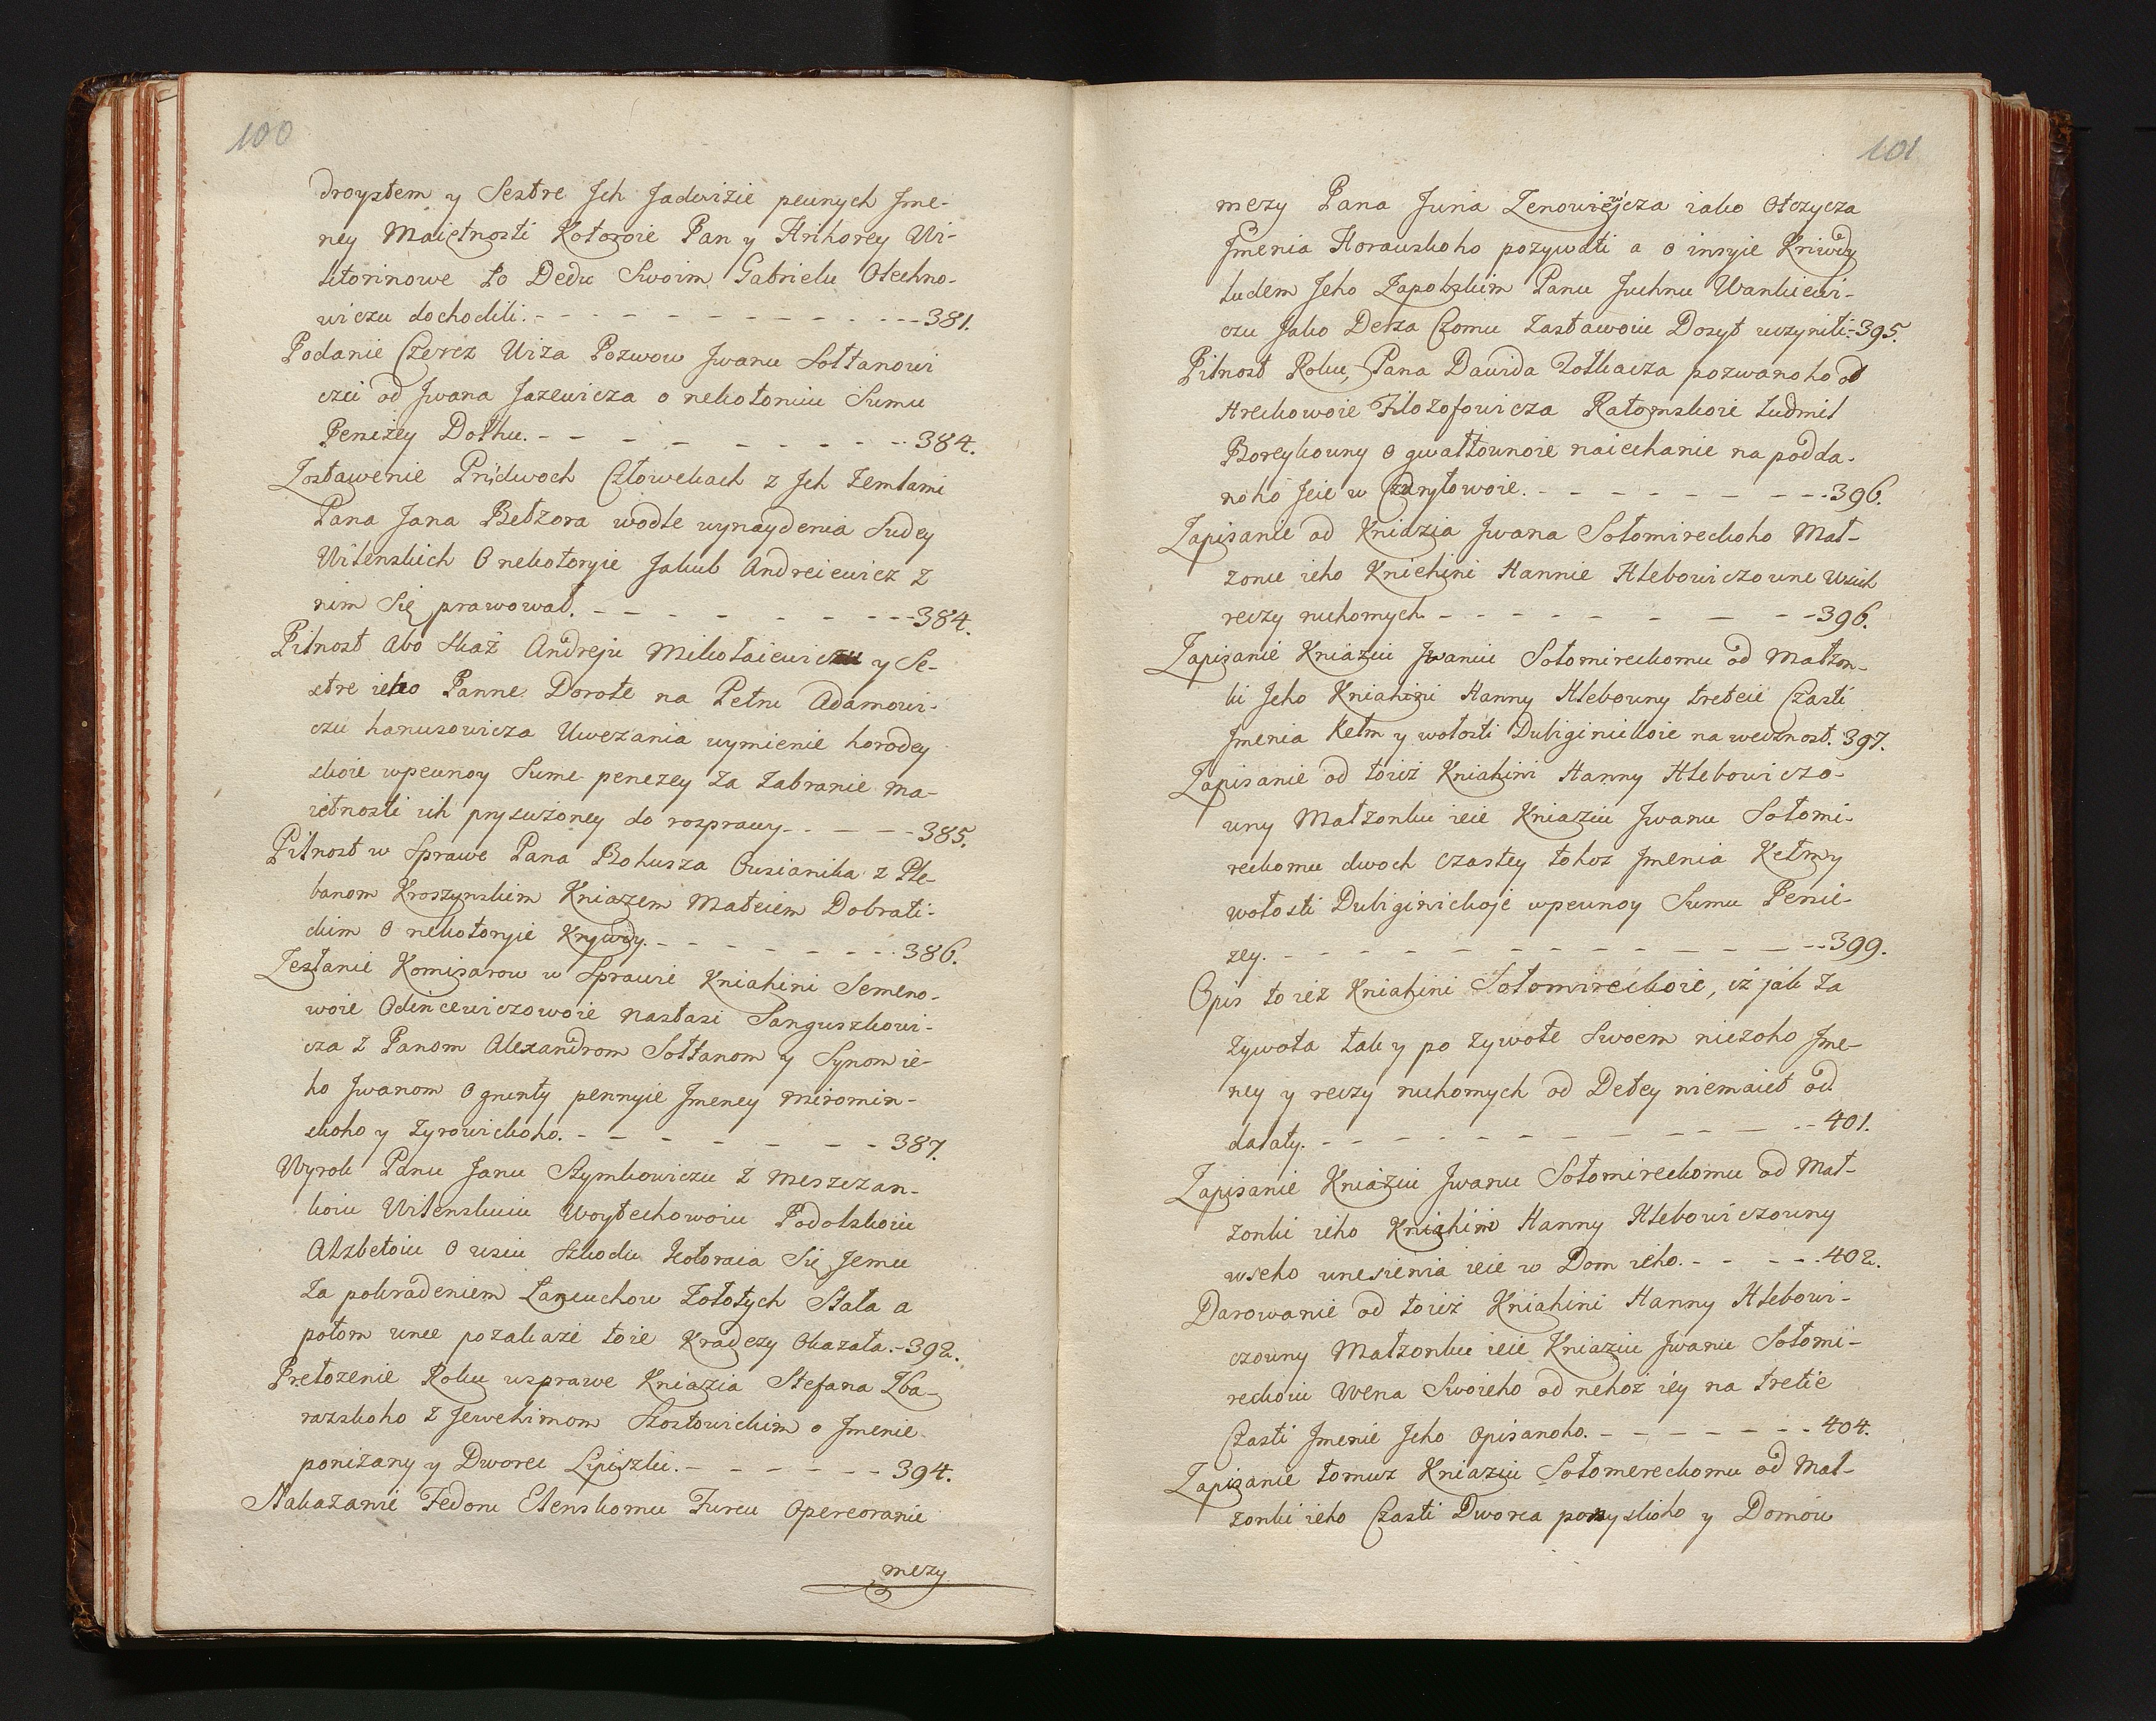 100
droystem y Sestre Jch Jadwiżie pewnych Jme-
ney Maiętnosti Kotoroie Pan y Hrihorey Wi-
ktorinowe po Dedu Swoim Gabrielu Olechno-
wiczu dochodili. - - - 381.
Podanie Czerez Wiża Pozwow Jwanu Sołtanowi
czu od Jwana Jazewicza o nekotoruiu Sumu
Peniżey Dołhu. - - - 384.
Zostawenie Pri dwoch Człowekach z Jch Zemlami
Pana Jana Betzora wodle wynaydenia Sudey
Wilenskich O nekotoryie Jakub Andreiewicz z
nim Się prawował. - - - 384.
Pilnost Abo Skaz Andreju Mikołaiewiczu y Se-
stre ieho Panne Dorote na Petru Adamowi-
czu hanusowicza Uwezania wymienie horodey
skoie wpewnoy Sume penezey za zabranie ma-
ietnosti ich prysużoney do rosprawy. - - - 385.
Pilnost w Sprawe Pana Bohusza Ousianika z Ple-
banom Kroszynskim Kniazem Mateiem Dobrati-
ckim O nekotoryie Krywdy. - - - 386.
Zesłanie Komisarow w Sprawie Kniahini Semeno-
woie Odincewiczowoie Nastasi Sanguszkowi-
cza z Panom Alexandrom Sołtanom y Synom ie-
ho Jwanom O grunty pewnyie Jmeney miromin-
skoho y Zyrowickoho. - - - 387.
Wyrok Panu Janu Szymkowiczu z meszczan-
koiu Wilenskuiu Woytechowoiu Podolskoiu
Alzbetoiu O usiu Szkodu Kotoraia Się Jemu
za pokradeniem Lancuchow Zołotych Stała a
potom unee pozakaże toie Kradeży Okazała. - 392.
Prełozenie Roku usprawe Kniazia Stefana Zba-
razskoho z Jewchimom Szostowickim o Jmenie
ponizany y Dworec Lipiszki. - - - 394.
Nakazanie Fedoru Elenskomu Turcu Opereoranie
mezy
101
mezy Pana Juria Zenowiewicza iako Otczycza
Jmenia Horauskoho pozywati a o insyie Kriwdy
Ludem Jeho Zapolskim Panu Juchnu Wankiewi-
czu Jako Derza Czomu Zastawoiu Dosyt uczyniti. - 395.
Pilnost Roku, Pana Dawida Zotkacza pozwanoho od
Hreckowoie Filozofowicza Ratomskoie Ludmil
Boreykouny O gwałtownoie naiechanie na podda-
noho Jeie w Czurytowoie. - - - 396.
Zapisanie od Kniazia Jwana Sołomireckoho Mał-
zonce ieho Kniehini Hannie Hlebowiczowne Wsich
reczy ruchomych - - - 396.
Zapisanie Kniaziu Jwanu Sołomireckomu od Małzon-
ki Jeho Kniahini Hanny Hlebowny treteie Czasti
Jmenia Ketm y wołosti Dubiginickoie na wecznost. 397.
Zapisanie od toież Kniahini Hanny Hlebowiczo-
uny Małzonku ieie Kniaziu Jwanu Sołomi-
reckomu dwoch czastey tohoz Jmenia Ketmy
wołosti Dubiginickoje wpewnoy Sumu Penie-
zey. - - - 399.
Opis toiez Kniahini Sołomireckoie, iż jak za
zywota tak y po zywote Swoem nieżoho Jme-
ney y reczy ruchomych od Detey niemaiet od
dalaty. - - - 401.
Zapisanie Kniaziu Jwanu Sołomireckomu od Mał-
zonki ieho Kniahini Hanny Hlebowiczouny
wseho unesienia ieie w Dom ieho. - - - 402.
Darowanie od toież Kniahini Hanny Hlebowi-
czouny Małzonku ieie Kniaziu Jwanu Sołomi-
reckoiu Wena Swoieho od nehoż iey na tretie
Czasti Jmenie Jeho Opisanoho. - - - 404.
Zapisanie tomuz Kniaziu Sołomereckomu od Mał-
zonki ieho Czasti Dworca ponyskoho y Domow